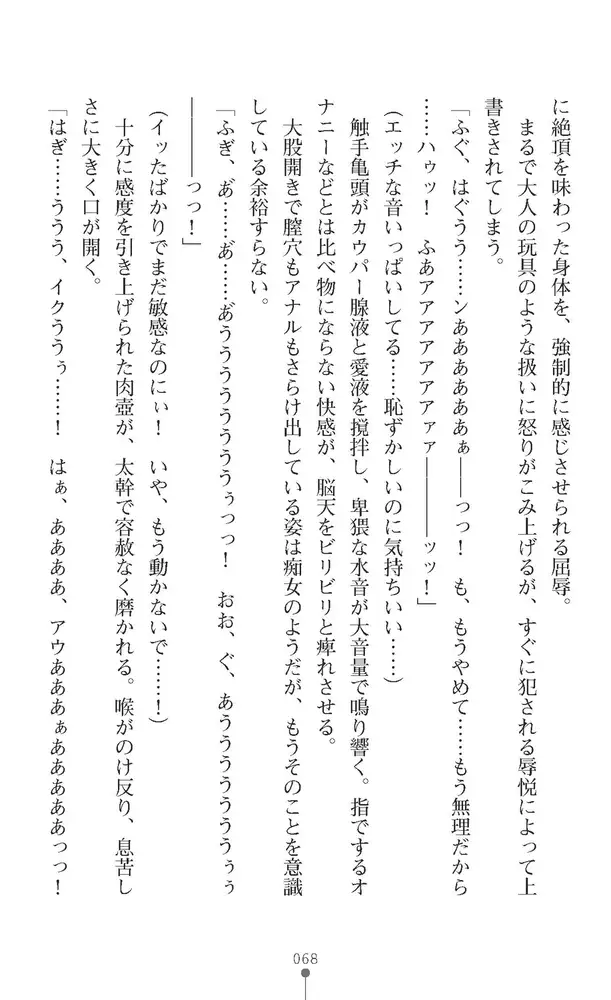 に絶頂を味わった身体を、強制的に感じさせられる屈辱。
まるで大人の玩具のような扱いに怒りがこみ上げるが、すぐに犯される辱悦によって上
書きされてしまう。
「ふぐ、はぐうう……ンあああああぁ――っっ！　も、もうやめて……もう無理だから
……ハゥッ！　ふあアアアアアアアァァ――――ッッ！」
(エッチな音いっぱいしてる……恥ずかしいのに気持ちいい……)
触手亀頭がカウパー腺液と愛液を撹拌し、卑猥な水音が大音量で鳴り響く。指でするオ
ナニーなどとは比べ物にならない快感が、脳天をビリビリと痺れさせる。
大股開きで膣穴もアナルもさらけ出している姿は痴女のようだが、もうそのことを意識
している余裕すらない。
「ふぎ、あ゛……あ゛……あ゛うううううううぅっっ！　おお、ぐ、あうううううううぅぅ
――――っっ！」
(イッたばかりでまだ敏感なのにぃ！　いや、もう動かないで……！)
十分に感度を引き上げられた肉壺が、太幹で容赦なく磨かれる。喉がのけ反り、息苦し
さに大きく口が開く。
「はぎ……ううう、イクううぅ……！　はぁ、ああああ、アウああああぁああああああっっ！
068